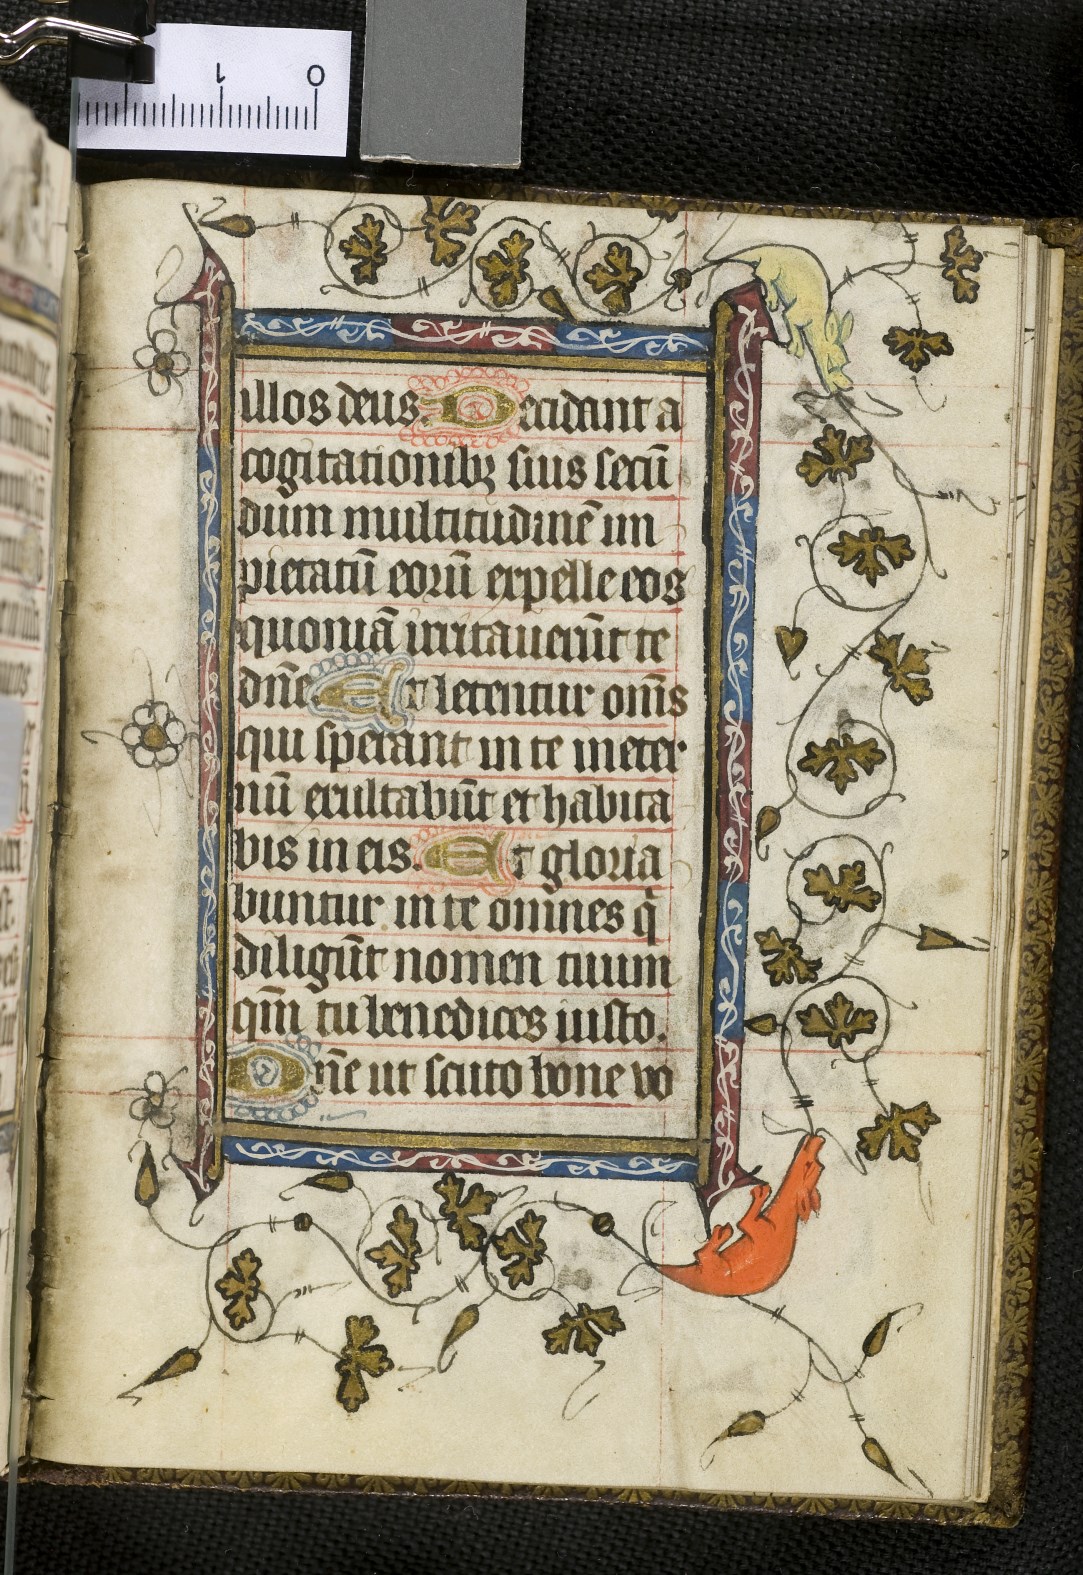 1 0
illos deus Decidant a
cogitationibꝫ suis secū
dum multitudinē im
pietatū eorū expelle eos
quoniā irritauerūt te
dn̄e Et letentur om̄s
qui sperant in te in eter
nū exultabūt et habita
bis in eis. Et gloria
buntur in te omnes qi
diligūt nomen tuum
qm̄ tu benedices iusto.
Dn̄e ut scuto bone vo